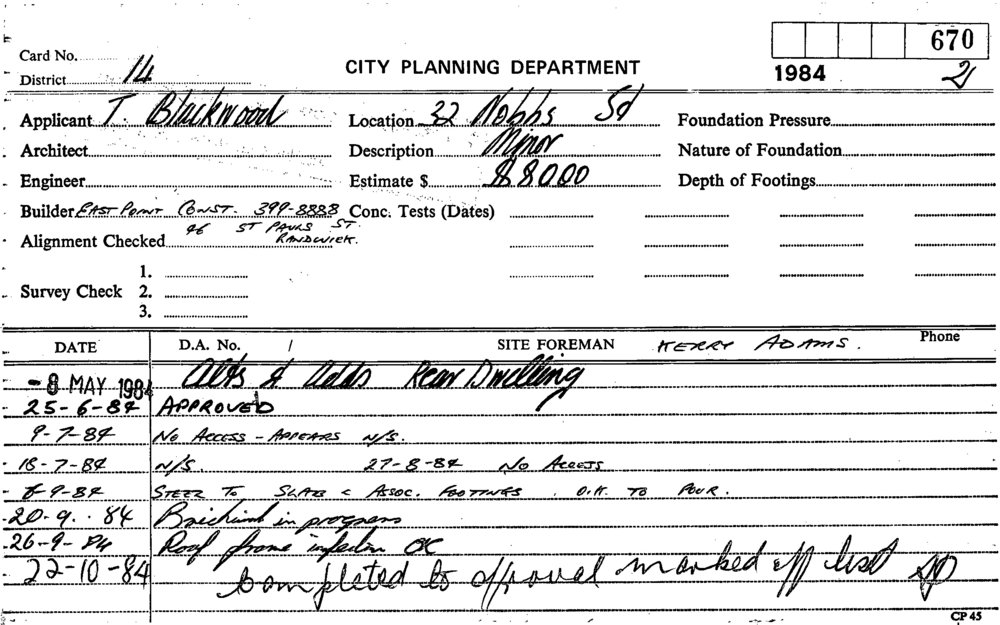 670
Card No.
CITY PLANNING DEPARTMENT
1984
District 14
Applicant T. Blackwood Location 22 Nobbs St Foundation Pressure
Architect Description Minor Nature of Foundation
Engineer Estimate $ $8000 Depth of Footings
Builder EAST POINT CONST. 399-8888 Conc. Tests (Dates)
46 ST PAULS ST.
Alignment Checked RANDWICK.
1.
Survey Check 2.
3.
DATE D.A. No. / SITE FOREMAN KERRY ADAMS. Phone
-8 MAY 1984 Alts & Adds Rear Dwelling
25-6-84 APPROVED
9-7-84 NO ACCESS - APPEARS N/S.
18-7-84 N/S. 27-8-84 NO ACCESS
-9-84 STEEL TO SLAB & ASSOC. FOOTINGS. O.K. TO POUR.
20-9-84 Brickwork in progress
26-9-84 Roof frame OK
22-10-84 Completed to approval marked off list
CP 45